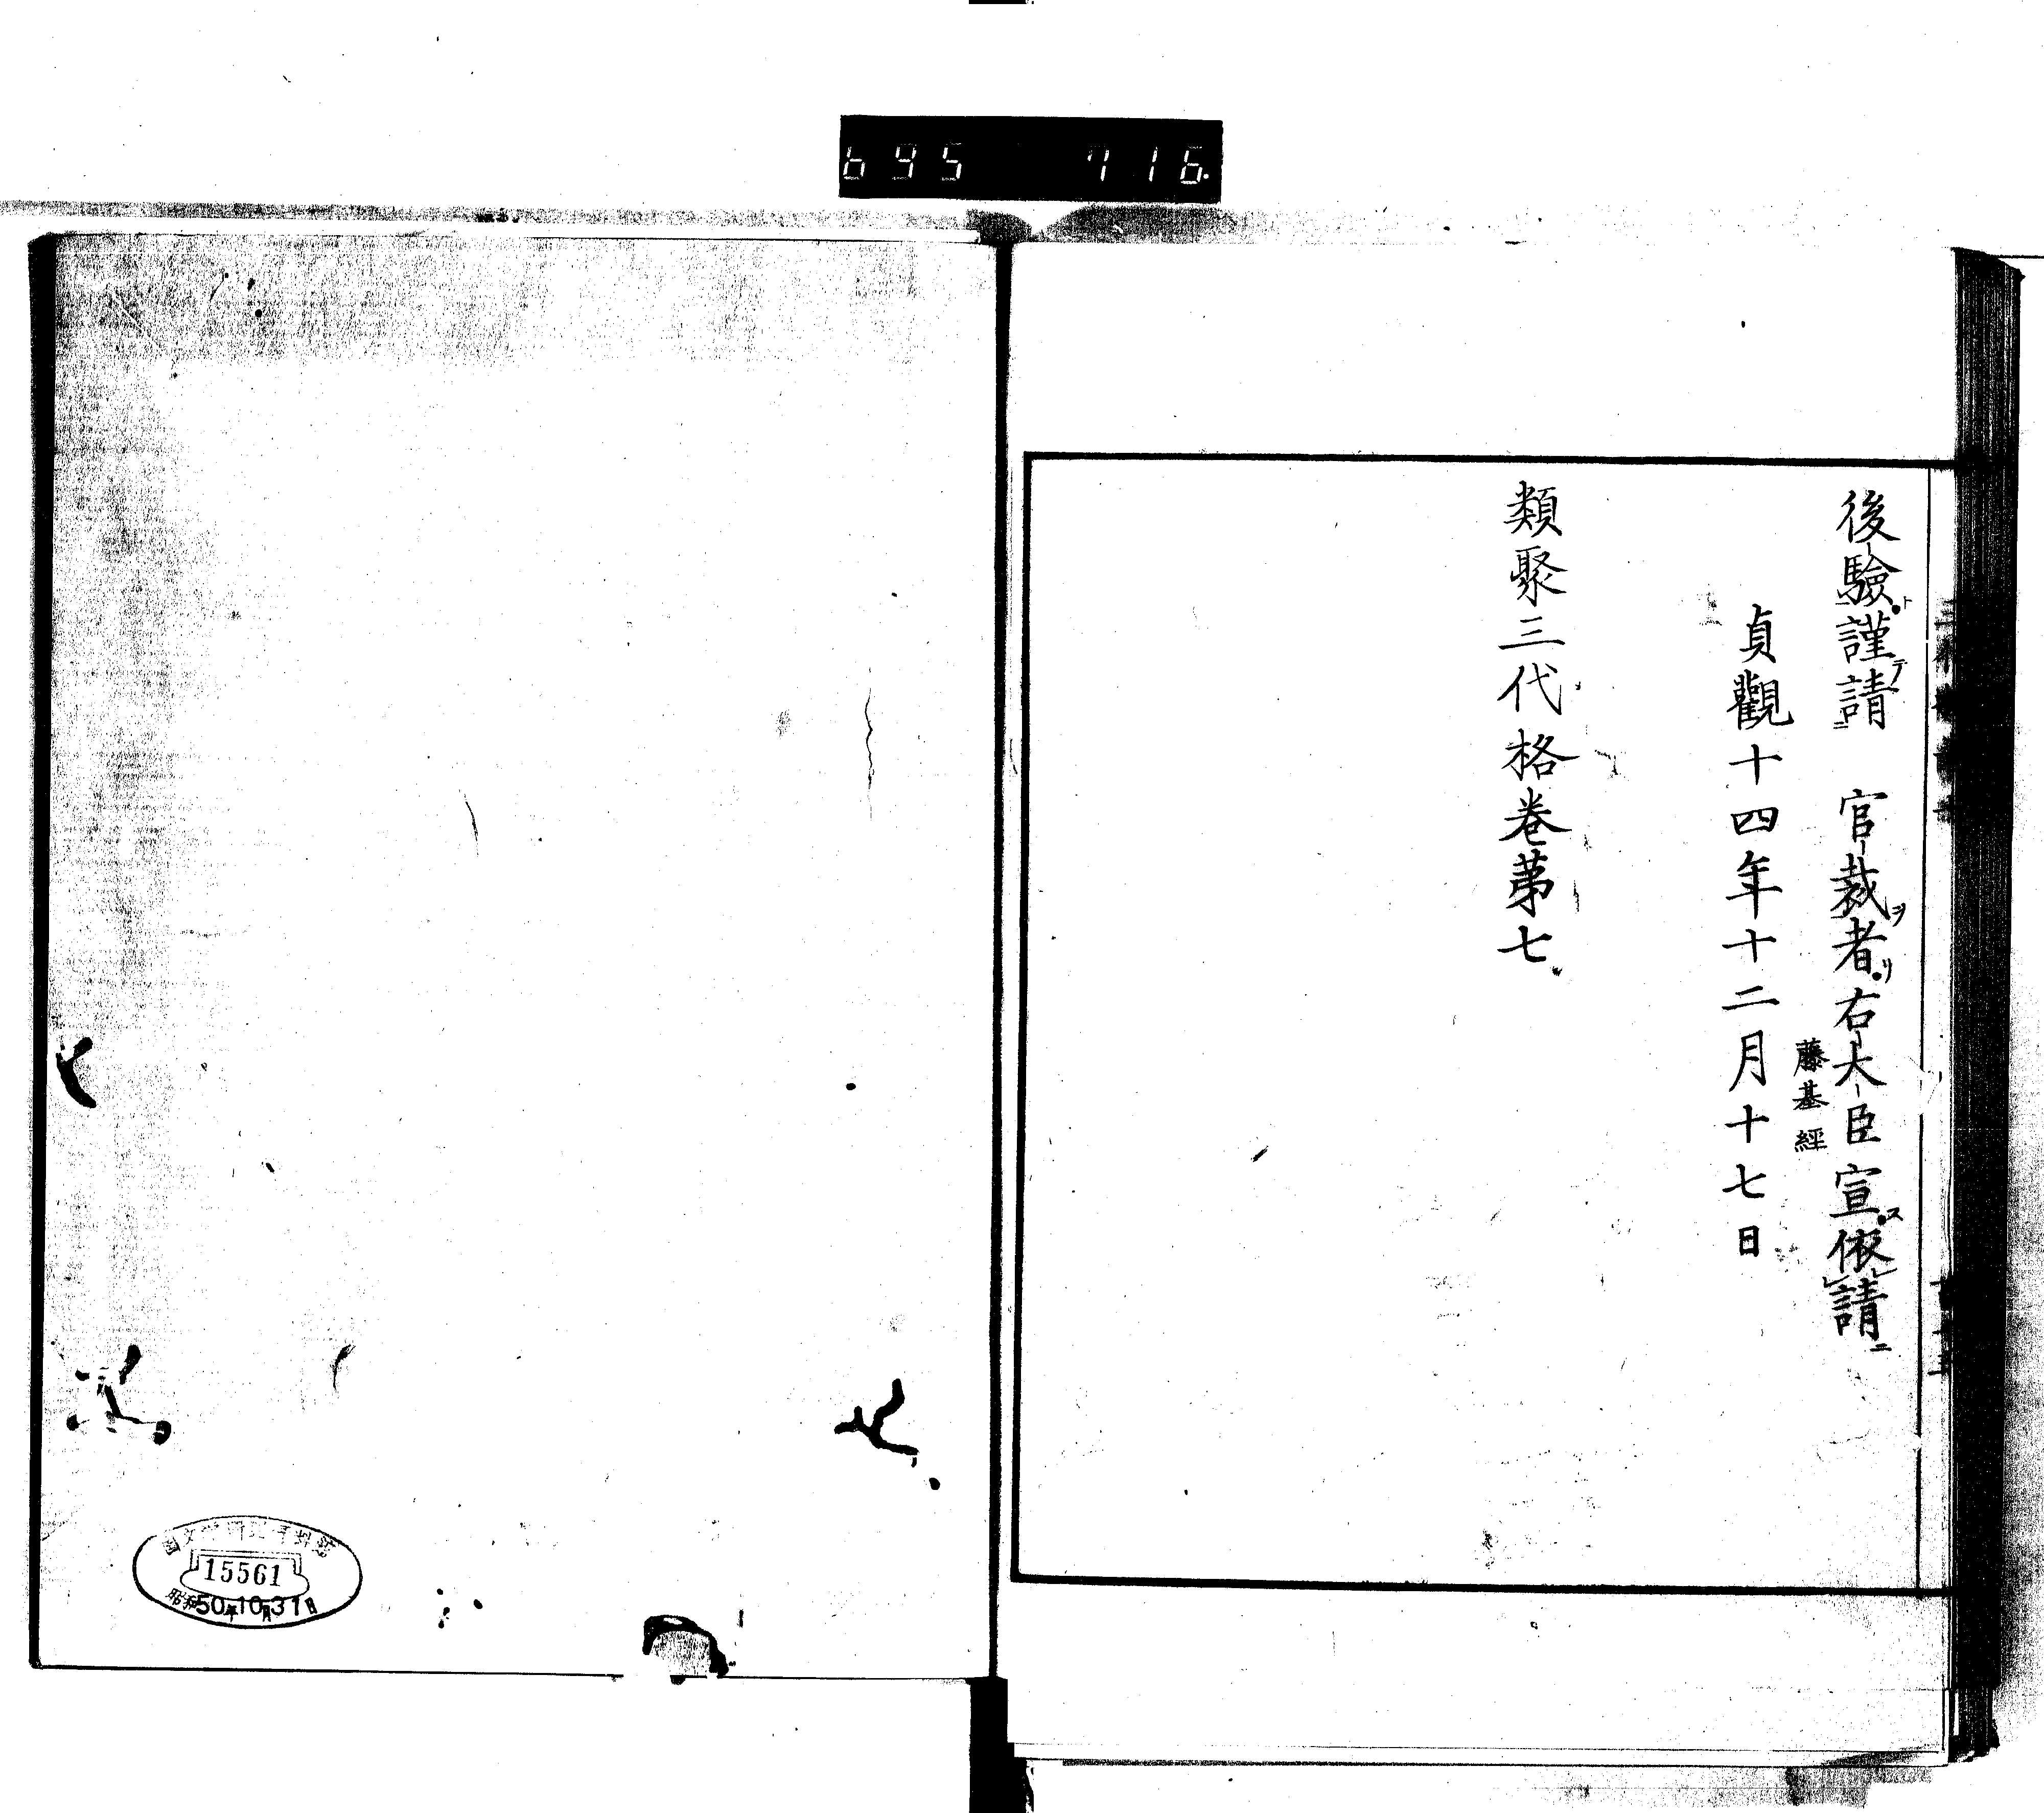 695 716.
後驗謹請 官裁者右大臣宣依請
藤基經
貞觀十四年十二月十七日
類聚三代格卷第七
15561
昭和50年10月31日